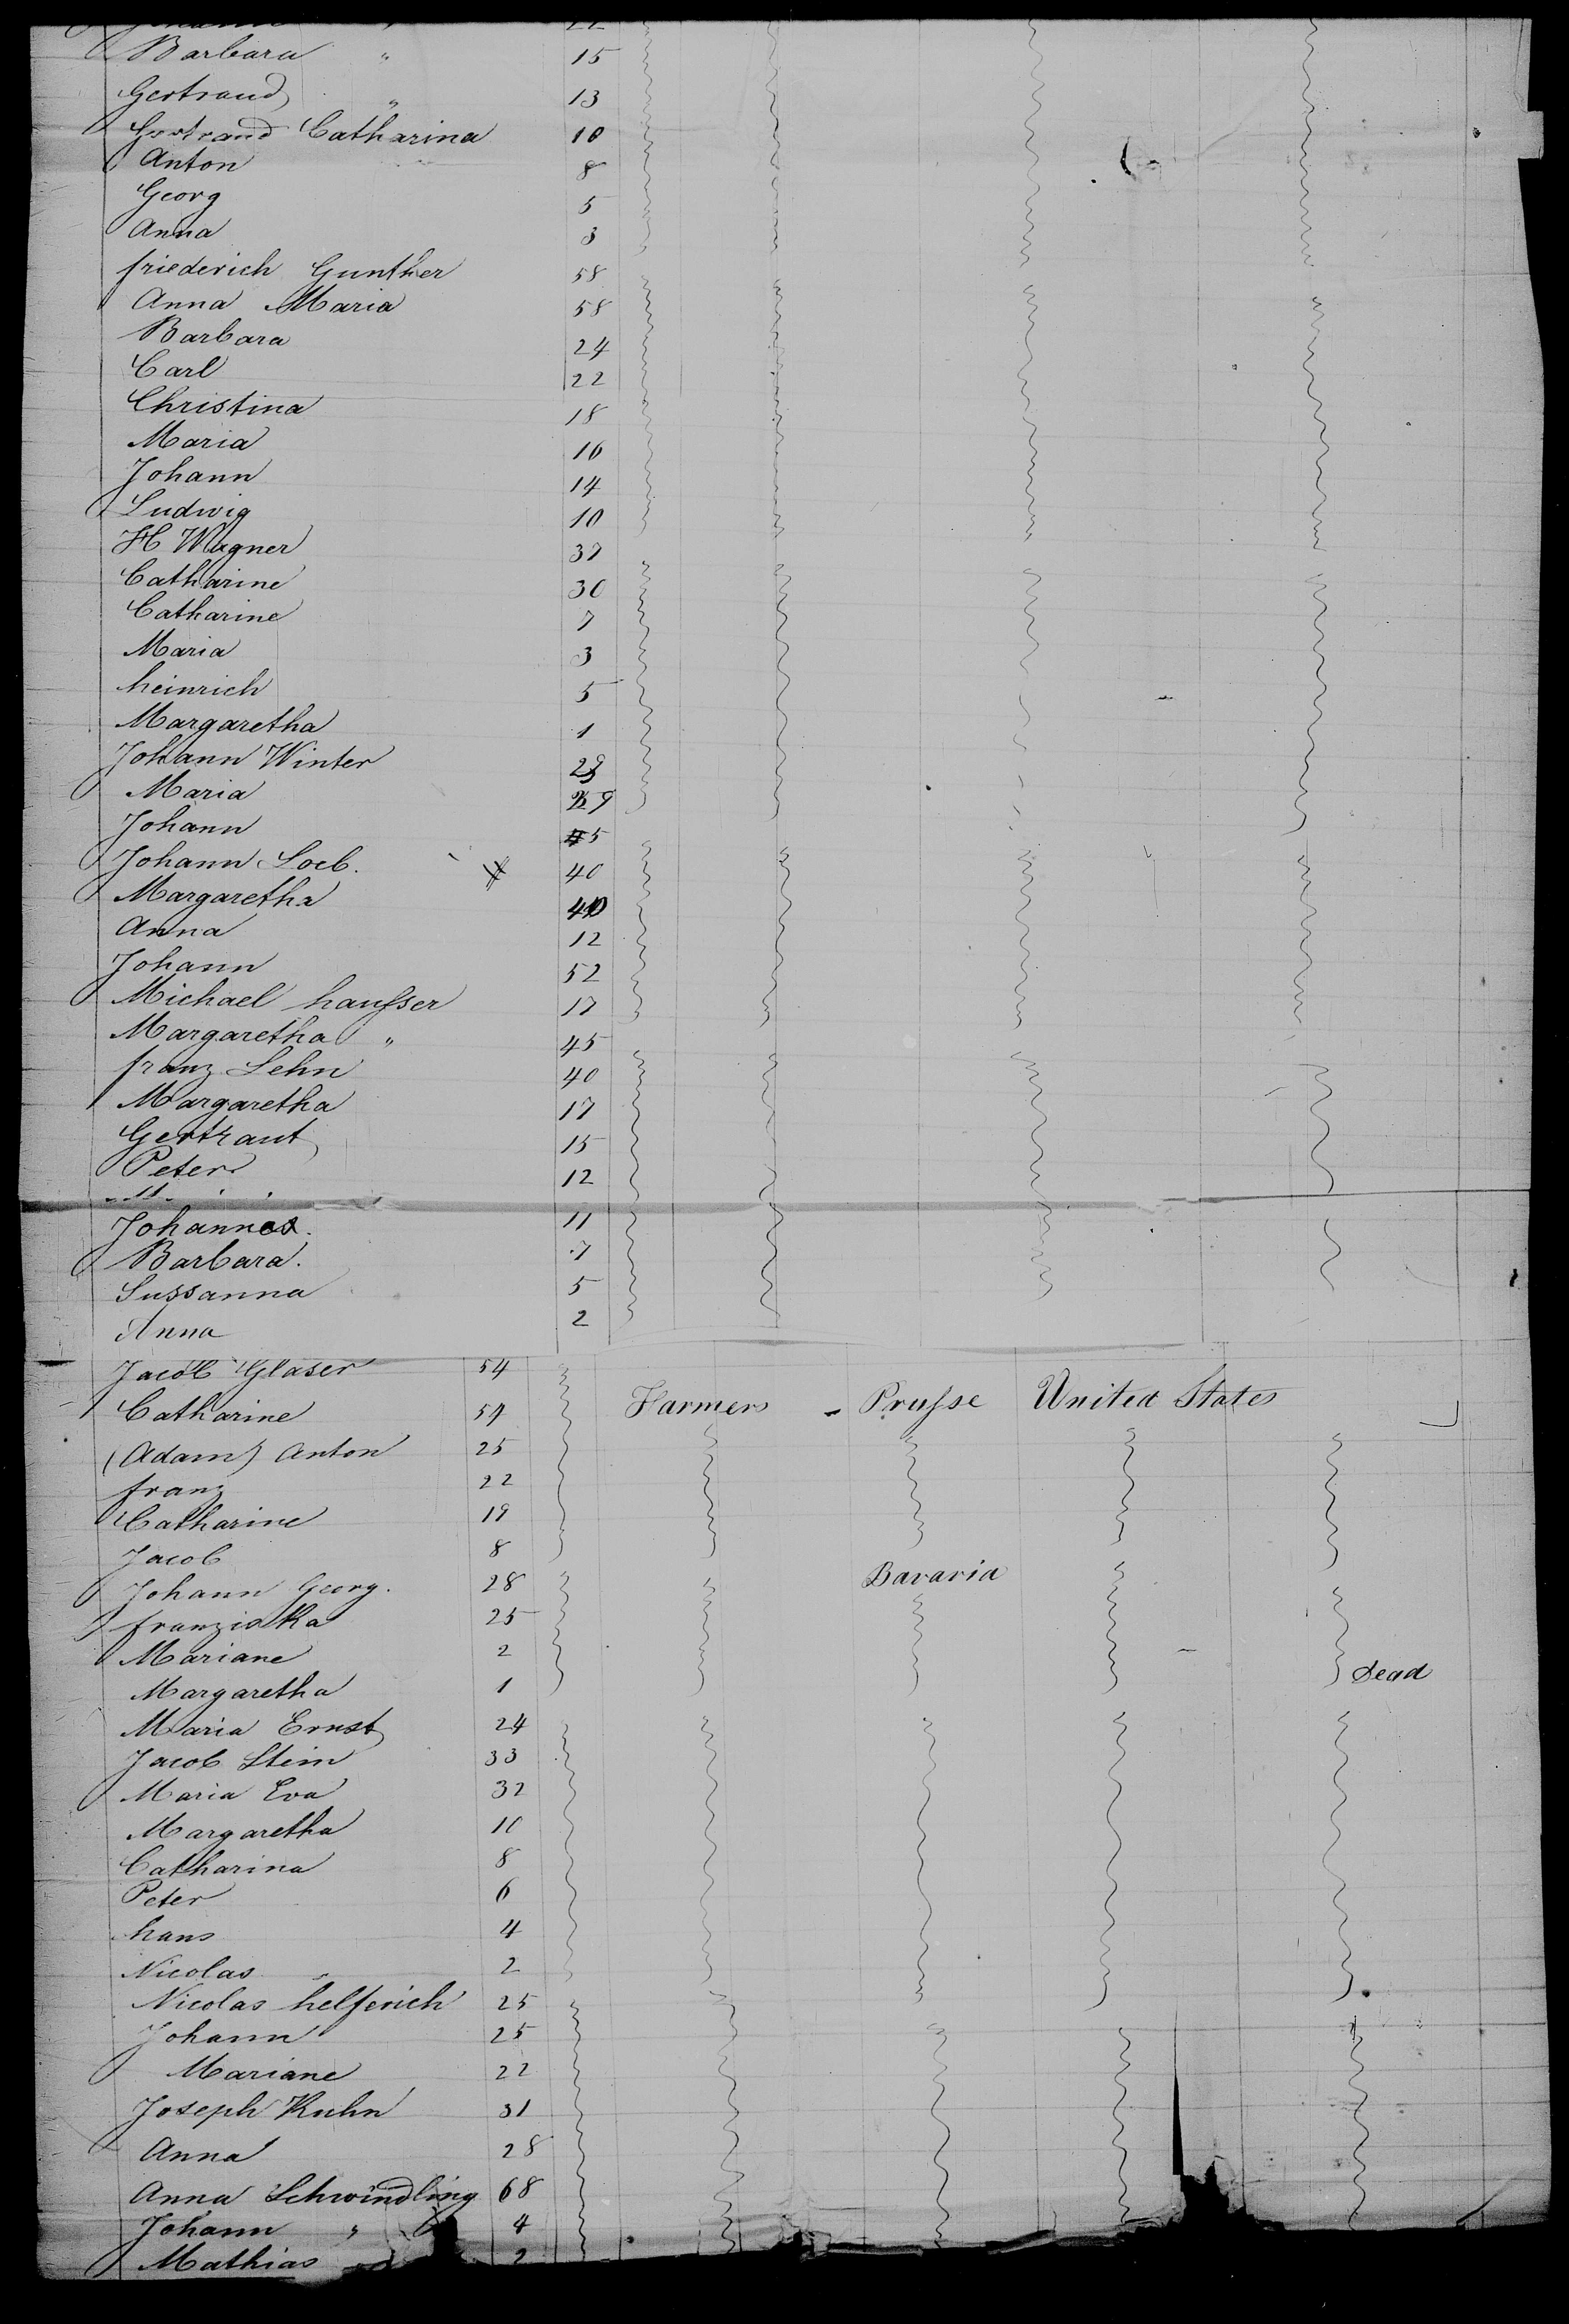 Barbara " 15
Gertraud " 13
Gertraud Catharina 10
Anton 8
Georg 5
Anna 3
friederich Gunther 58
Anna Maria 58
Barbara 24
Carl 22
Christina 18
Maria 16
Johann 14
Ludwig 10
H Wagner 37
Catharine 30
Catharine 7
Maria 3
heinrich 5
Margaretha 1
Johann Winter
Maria
Johann 5
Johann Loeb. 40
Margaretha 40
Anna 12
Johann 52
Michael hausser 17
Margaretha " 45
franz Lehn 40
Margaretha 17
Gertraut 15
Peter 12
Johannes. 11
Barbara. 7
Sussanna 5
Anna 2
Jacob Glaser 54
Catharine 54 Farmers - Prusse United States
(Adam) Anton 25
franz 22
Catharine 19
Jacob 8
Johann Georg. 28 Bavaria
franziska 25
Mariane 2
Margaretha 1 dead
Maria Ernst 24
Jacob Stein 33
Maria Eva 32
Margaretha 10
Catharina 8
Peter 6
hans 4
Nicolas 2
Nicolas helferich 25
Johann 25
Mariane 22
Joseph Kuhn 31
Anna 28
Anna Schwindling 68
Johann " 4
Mathias 2